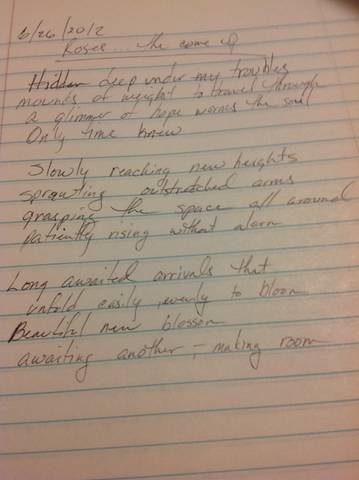 6/26/2012
Roses... the come up
Hidden deep under my troubles
mounds of weight to travel through
a glimmer of hope worms the soul
Only time knew
Slowly reaching new heights
sprawting outstretched arms
grasping the space all around
patiently rising without alarm
Long awaited arrivals that
unfold easily, evenly to bloom
Beautiful new blossom
awaiting another, - making room